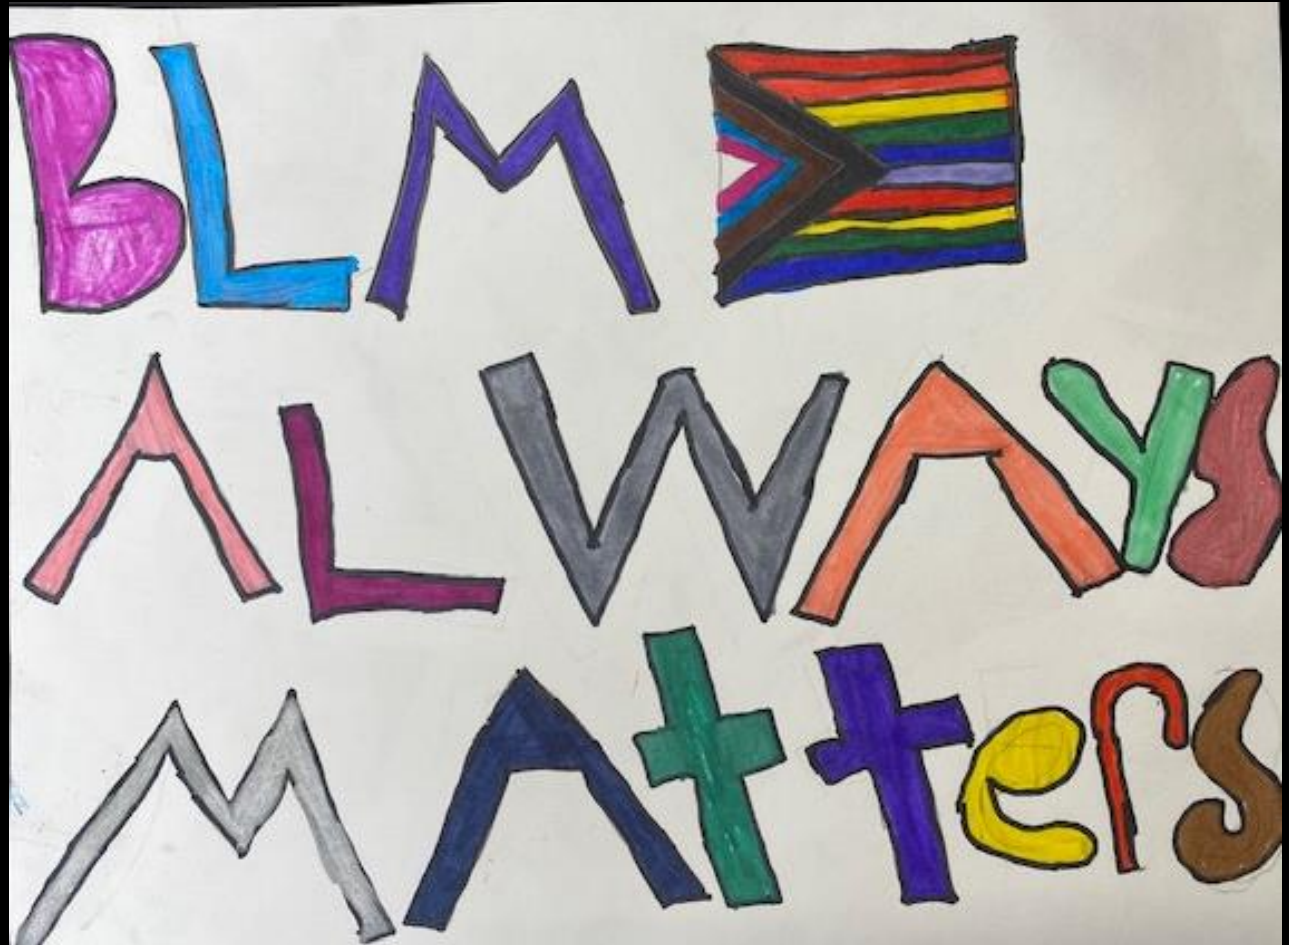 BLM
ALWAys
MAtters